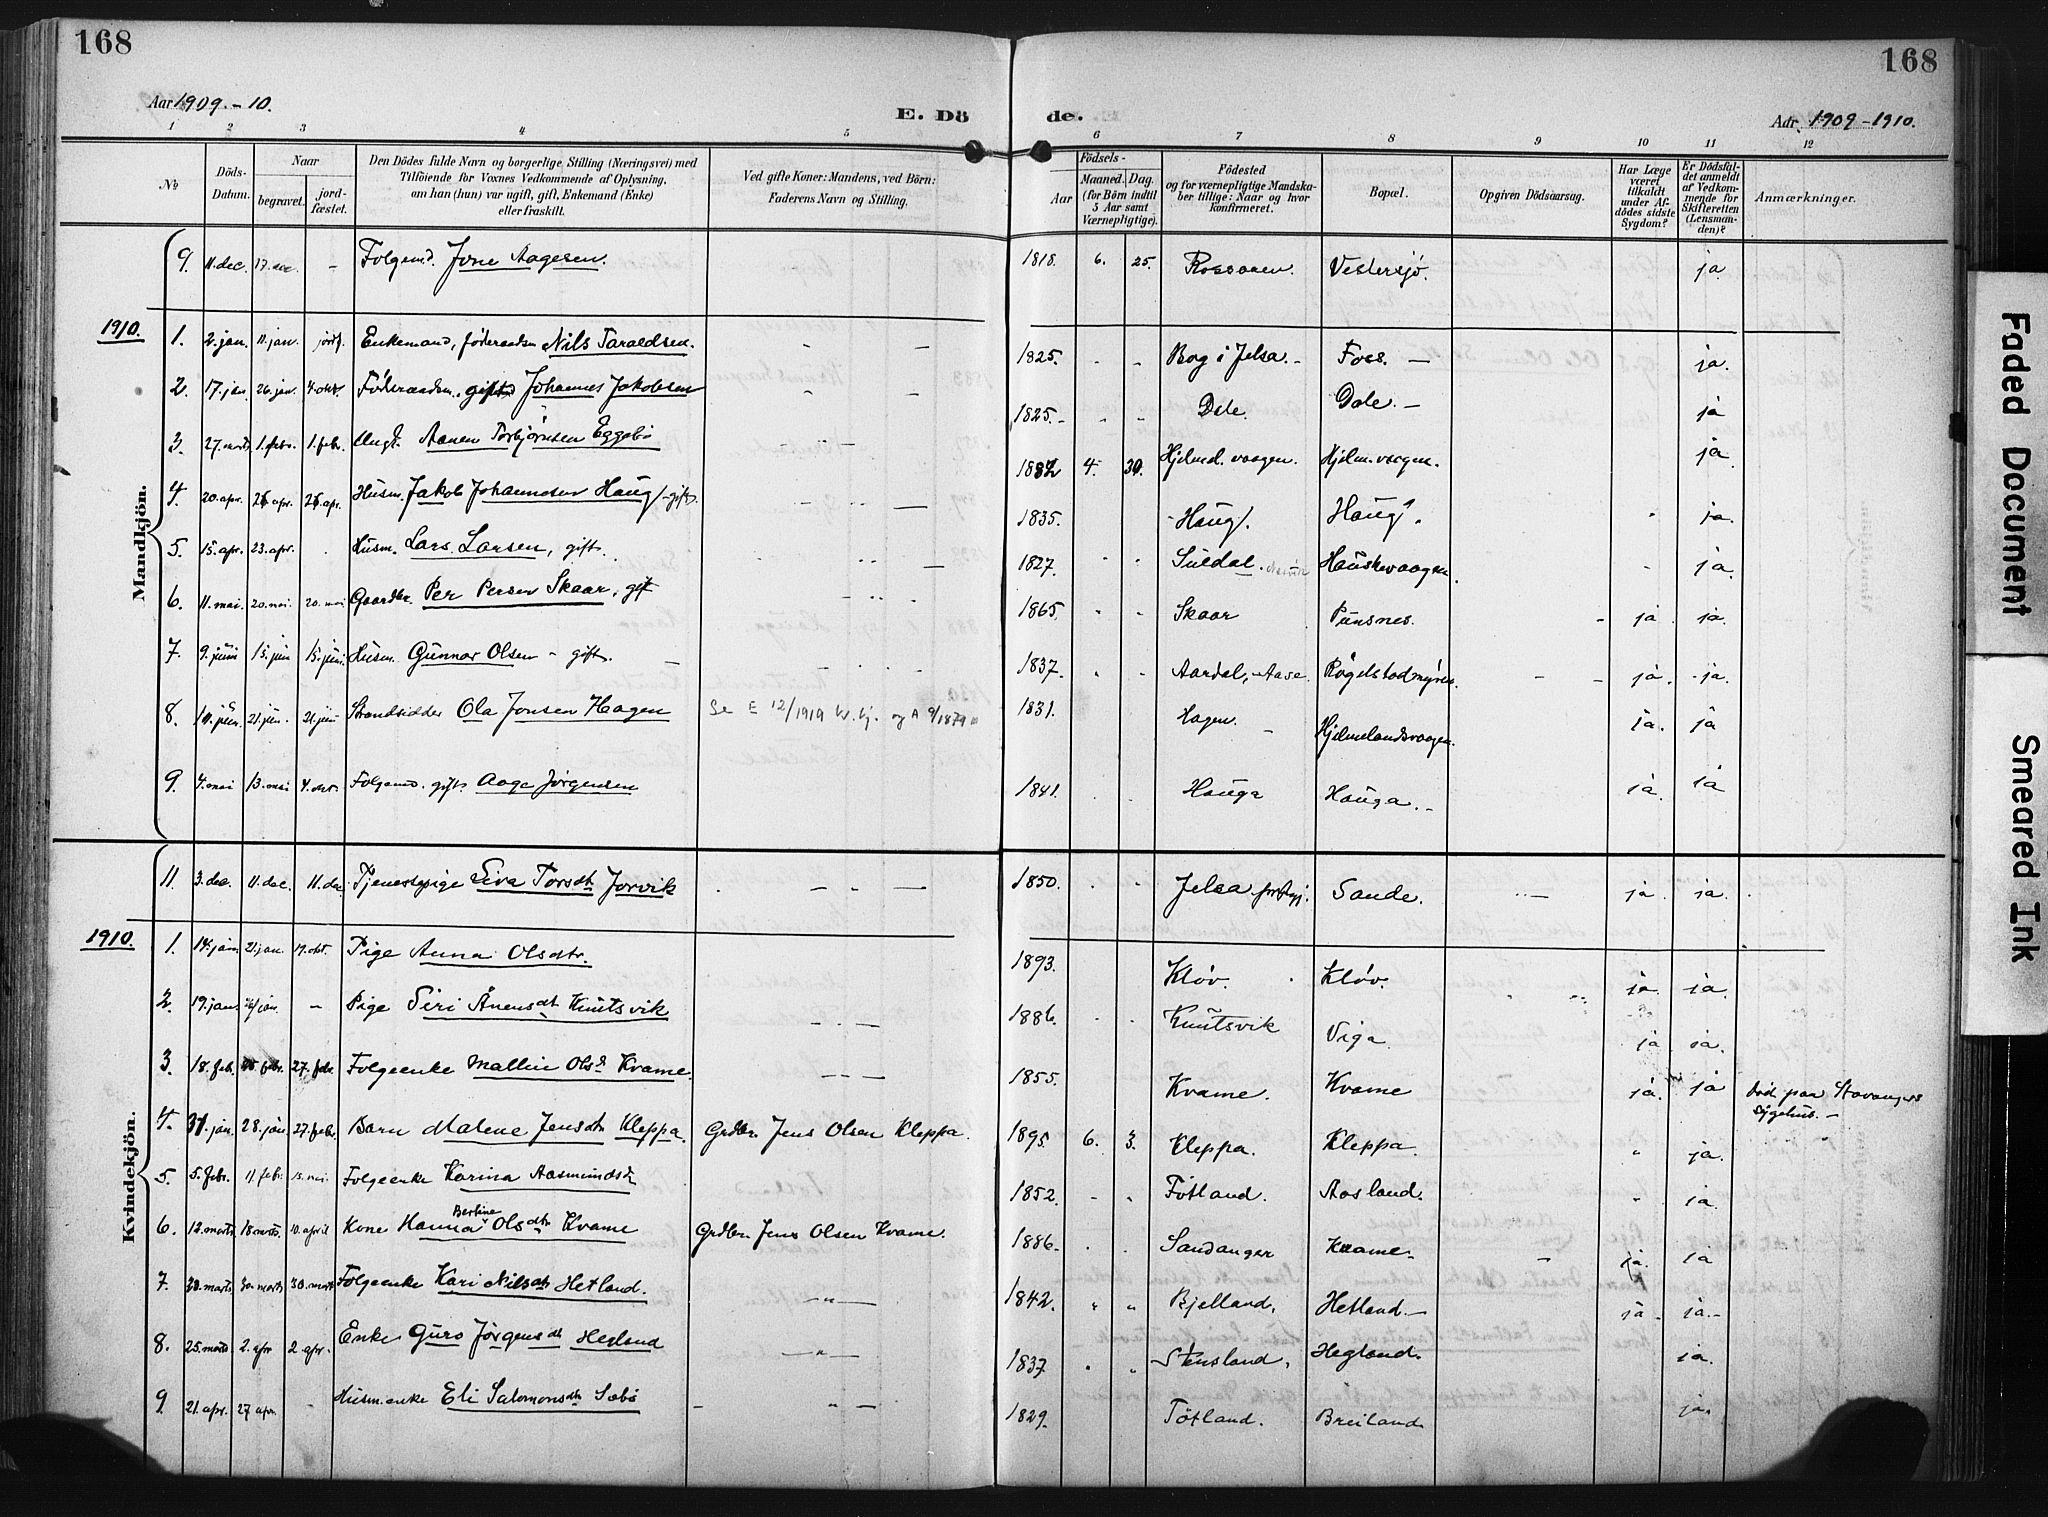 168
168
Aar 1909.-10.
E. Dö
de.
Aar 1909-1910.
1 2 3 4 5 6 7 8 9 10 11 12
No
Döds-Datum.
Naar
begravet.
jord-fæstet.
Den Dödes fulde Navn og borgerlige Stilling (Næringsvei) med
Tilföiende for Voxnes Vedkommende af Oplysning,
om han (hun) var ugift, gift, Enkemand (Enke)
eller fraskilt.
Ved gifte Koner: Mandens, ved Börn:
Faderens Navn og Stilling.
Födsels-
Aar
Maaned. Dag.
(for Börn indtil
5 Aar samt
Værnepligtige).
Födested
og for værnepligtige Mandska-
ber tillige: Naar og hvor
konfirmeret.
Bopæl.
Opgiven Dödsaarsag.
Har Læge
været
tilkaldt
under Af-
dödes sidste
Sygdom?
Er Dödsfal-
det anmeldt
af Vedkom-
mende for
Skifteretten
(Lensman-
den)?
Anmærkninger.
Mandkjön.
9. 11. dec. 17. dec. - Folgemd. Jone Aagesen. 1818. 6. 25. Vestersjø. ja.
1910.
1. 2. jan. 11. jan. jordf. Enkemand, føderaadsm Nils Taraldsen. 1825. Bog i Jelsa. - Foss. - ja.
2. 17. jan. 26. jan. 4. okt. Føderaadsm. gift Johannes Jakobsen 1825. Dale. Dale. - ja
3. 27. marts 1. febr. 1. febr. Ungk. Aanen Torbjørnsen Eggebø 1882 4. 30. Hjelmel.vaagen. Hjelm.vaagen. ja
4. 20. apr. 26 apr. 26. apr. Husm. Jakob Johannesen Haug - gift. 1835. Haug. Haug. ja.
5. 15. apr. 23. apr. Husm. Lars Larsen, gift. 1827. Suldal. Hauskevaagen. ja.
6. 11. mai. 20. mai. 20. mai Gaardbr. Per Persen Skaar, gift 1865. Skaar Punsnes. ja ja.
7. 9. juni 15. juni 15. juni. Husm. Gunnar Olsen - gift. 1837. Aardal, Aase. Røgelstadmyren. ja. ja.
8. 10. juni. 21. juni. 21. juni Strandsidder Ola Jonsen Hagen Se E 12/1919 kv.kj. og A 9/1879 m 1831. Hagen. Hjelmelandsvaagen. ja. ja
9. 4. mai 13. mai 4. okt. Folgemd. gift Aage Jørgensen 1841. Hauga Hauga. - ja. ja
Kvindekjön.
11. 3. dec. 11. dec. 11. dec Tjenestepige Siva Torsdtr Jorvik 1850. Jelsa prestegj. Sande. ja. ja.
1910.
1. 14. jan. 21. jan 19. okt. Pige Anna Olsdtr. 1893. Kløv. Kløv. ja. ja.
2. 19. jan. - Pige Siri Ånensdt Knutsvik 1886. Knutsvik Viga. ja ja.
3. 18. feb. febr. 27. feb. Folgeenke Malline Olsd Kvame. 1855. Kvame. Kvame ja. ja død paa Stavanger
Sygehus. -
4. 31. jan. 28. jan 27. febr. Barn Malene Jensdtr Kleppa. Grdbr. Jens Olsen Kleppa. 1895. 6. 3. Kleppa. Kleppa. ja.
5. 5. febr. 11. febr. 15. mai. Folgeenke Karina Aasmundsdt 1852. Føtland. Aasland. ja
6. 12. marts 18 marts 10. april Kone Hanna Bertine Olsdtr Kvame Grdbr. Jens Olsen Kvame. 1886. Sandanger Kvame - ja. ja
7. 20. marts 30. marts 30. marts Folgeenke Kari Nilsdtr Hetland. 1842. Bjelland. Hetland. - ja. ja.-
8. 25. marts 2. apr 2 apr. Enke Guro Jørgensdt Hegland 1837 Stensland. Hegland. ja.
9. 21. apr. 27 apr. Husm.enke Eli Salomonsdtr Sæbø 1829. Tøtland. Breiland. ja.
Faded Document
Smeared Ink